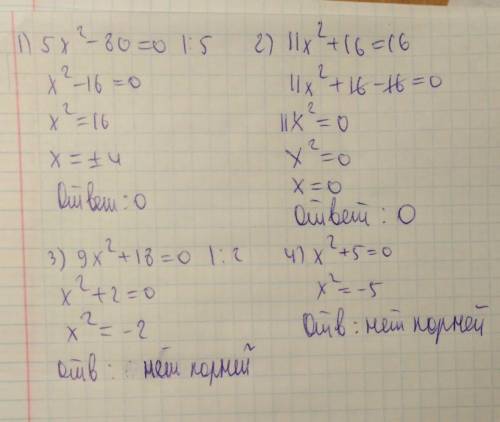 1) 5x²-80=0 |:5
x²-16=0
x²=16
x=±4
Ответ: 0
2) 11x²+16=16
11x²+16-16=0
11x²=0
x²=0
x=0
Ответ: 0
3) 9x²+18=0 |:2
x²+2=0
x²=-2
Отв: нет корней
4) x²+5=0
x²=-5
Отв: нет корней